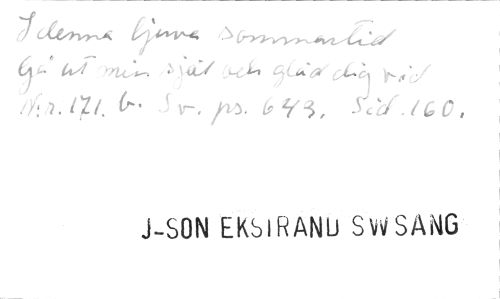 I denna ljuva sommartid
Gå ut min själ och gläd dig vid
N:r. 171. b. Sv. ps. 643. Sid. 160.
J-SON EKSTRAND SWSANG